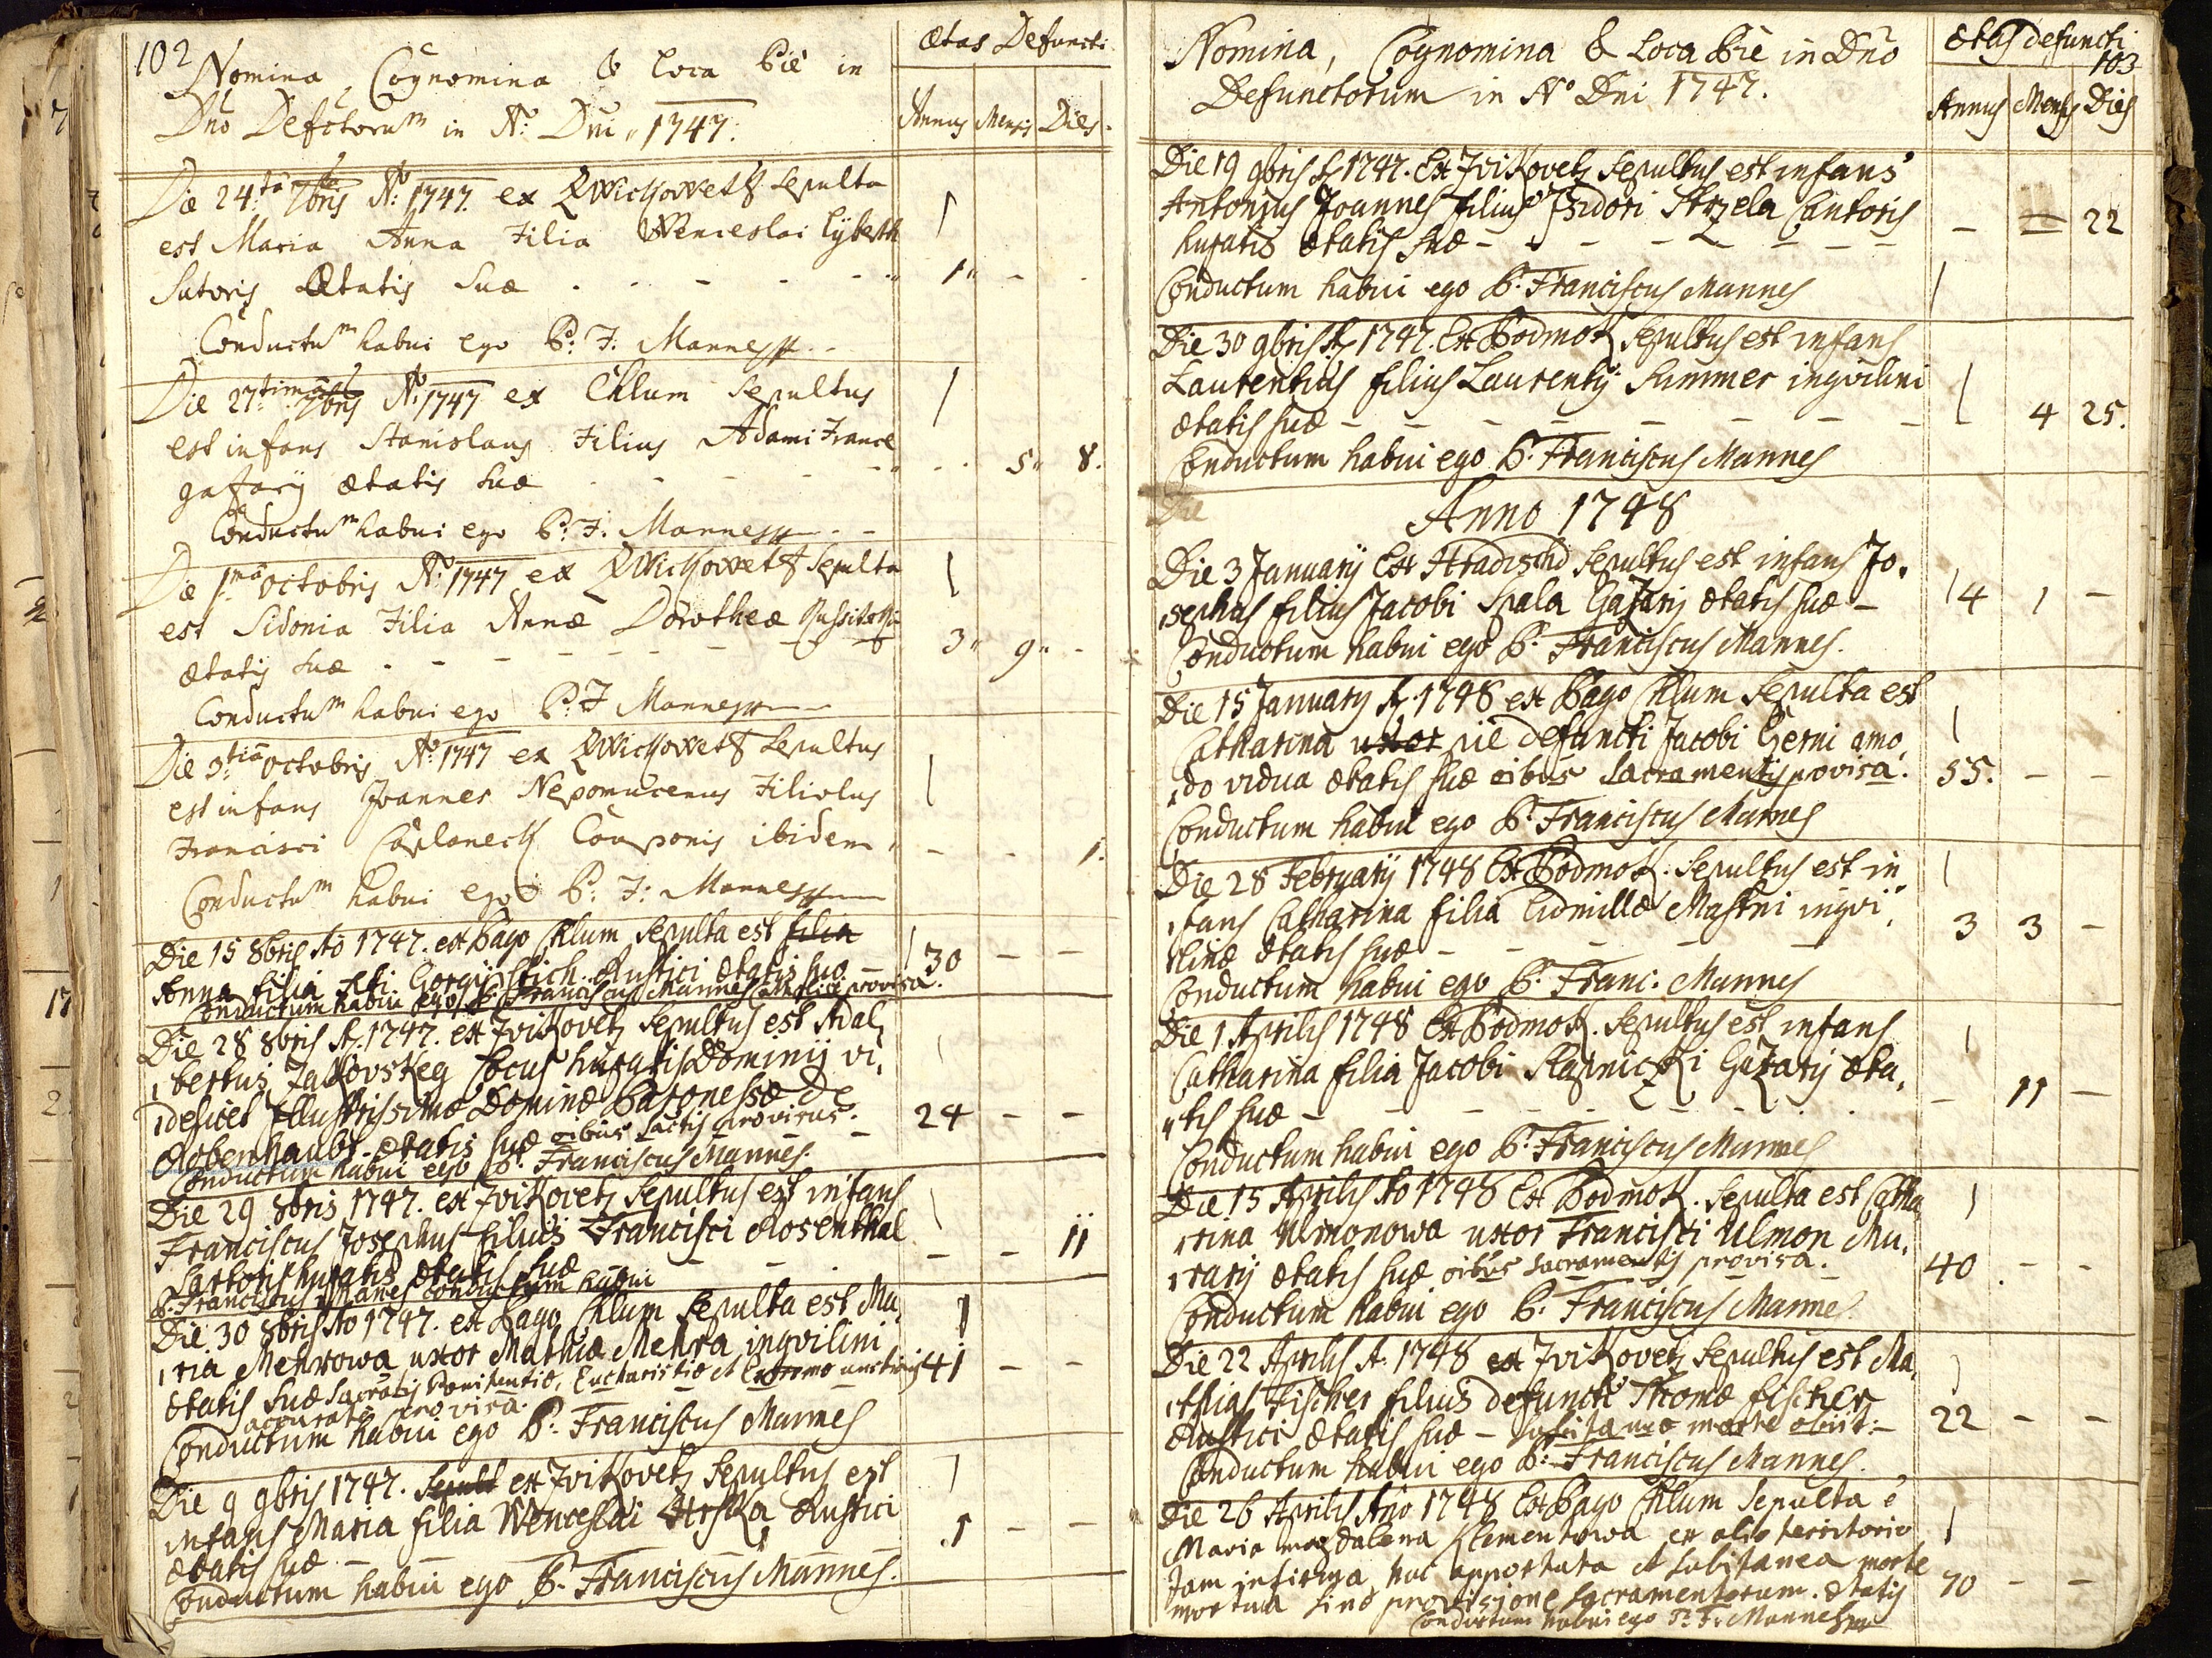 102
Nomina, Cognomina & Loca Pie in
Dno Defctorum in Ao: Dni 1747.
Ætas Defuncti
Annus Mensis Dies.
Die 24ta 7bris Ao: 1747. ex Sepulta
est Maria Anna Filia Wenceslai
Sutoris Ætatis Suæ - - - 1 - -
Conductum habui ego P: F: Mannes
Die 27timâ 7bris Ao 1747 ex Chlum Sepultus
est infans Stanislaus Filius Adami
gazarij ætatis suæ - - - 5 8.
Conductum habui ego P: F: Mannes
Die 1mâ octobris Ao: 1747 ex Sepulta
est Sidonia Filia Annæ Dorotheæ
ætatis suæ - - - 3 9 -
Conductum habui ego P: F Mannes
Die 3tiâ octobris Ao 1747 ex Sepultus
est infans Joannes Nepomucenus Filiolus
Francisci Cauponis ibidem - - 1.
Conductum habui ego P: F: Mannes
Die 15 8bris Ao 1747. ex Pago Chlum Sepulta est filia
Anna filia Rustici ætatis suo - 30 - -
Conductum habui ego P. Franciscus Mannes provisa.
Die 28 8bris A. 1747. ex Zvikovetz Sepultus est Adal,
,bertus Cocus hujatis Dominij vi,
,delicet Illustrissimæ Dominæ Baronessæ De
ætatis suæ oibus sactis provisus. - 24 - -
Conductum habui ego P. Franciscus Mannes.
Die 29 8bris 1747. ex Zvikovetz Sepultus est infans
Franciscus Josephus filius Francisci Rosenthal
Sartoris hujatis ætatis suæ - - 11
P. Franciscus Manes conductum habui
Die 30 8bris Ao 1747. ex Pago Chlum Sepulta est Ma,
,ria Mehrowa uxor Mathiæ Mehra inqvilini
ætatis suæ Sacratis Pœnitentiæ, Eucharistiæ et Extremo unctionis 41 - -
accurate provisa.
Conductum habui ego P. Franciscus Mannes
Die 9 9bris 1747. Sepult ex Zvikovetz Sepultus est
infans Maria filia Wenceslai Rustici
ætatis suæ - .1 - -
Conductum habui ego P. Franciscus Mannes.
103
Nomina, Cognomina & Loca Pie in Dno
Defunctorum in Ao Dni 1747.
Ætas defuncti
Annus Mensis Dies
Die 19 9bris A 1747. Ex Zvikovetz Sepultus est infans
Antonius Joannes filius Isidori Strzela Cantoris
hujatis ætatis suæ - - - - = 22
Conductum habui ego P. Franciscus Mannes
Die 30 9bris A 1747. Ex Podmok Sepultus est infans
Laurentius filius Laurentij Summer inqvilini
ætatis suæ - - - - 4 25.
Conductum habui ego P. Franciscus Mannes
Die
Anno 1748
Die 3 Januarij Ex Sepultus est infans Jo,
,sephus filius Jacobi Spala Gazarij ætatis suæ - 4 1 -
Conductum habui ego P. Franciscus Mannes.
Die 15 January A. 1748 ex Pago Chlum Sepulta est
Catharina uxor pie defuncti Jacobi amo,
,do vidua ætatis suæ oibus Sacramentis provisa. 55. - -
Conductum habui ego P. Franciscus Mannes
Die 28 Februarij 1748 Ex Podmok. Sepultus est in
,fans Catharina filia Lidmillæ inqvi,
,linæ ætatis suæ - - - 3 3 -
Conductum habui ego P. Franc. Mannes
Die 1 Aprilis 1748 Ex Podmok. Sepultus est infans
Catharina filia Jacobi Gazarij æta,
,tis suæ - - - - 11 -
Conductum habui ego P. Franciscus Mannes
Die 15 Aprilis Ao 1748 Ex Podmok. Sepulta est Catha,
,rina Ulmonowa uxor Francisci Ulmon Mu,
,rarij ætatis suæ oibus Sacramentis provisa. 40 . - -
Conductum habui ego P. Franciscus Mannes.
Die 22 Aprilis A. 1748 ex Zvikovetz Sepultus est Ma,
,thias Fischer filius defuncti Thomæ fischer
Rustici ætatis suæ - subitanea morte obiit. - 22 - -
Conductum habui ego P. Franciscus Mannes.
Die 26 Aprilis Ano 1748 Ex Pago Chlum Sepulta e
Maria magdalena Klementowa ex alio territorio
Jam infirma huc apportata et subitanea morte
mortua sine provisione Sacramentorum. ætatis 70 - -
Conductum habui ego P. Fr. Mannes